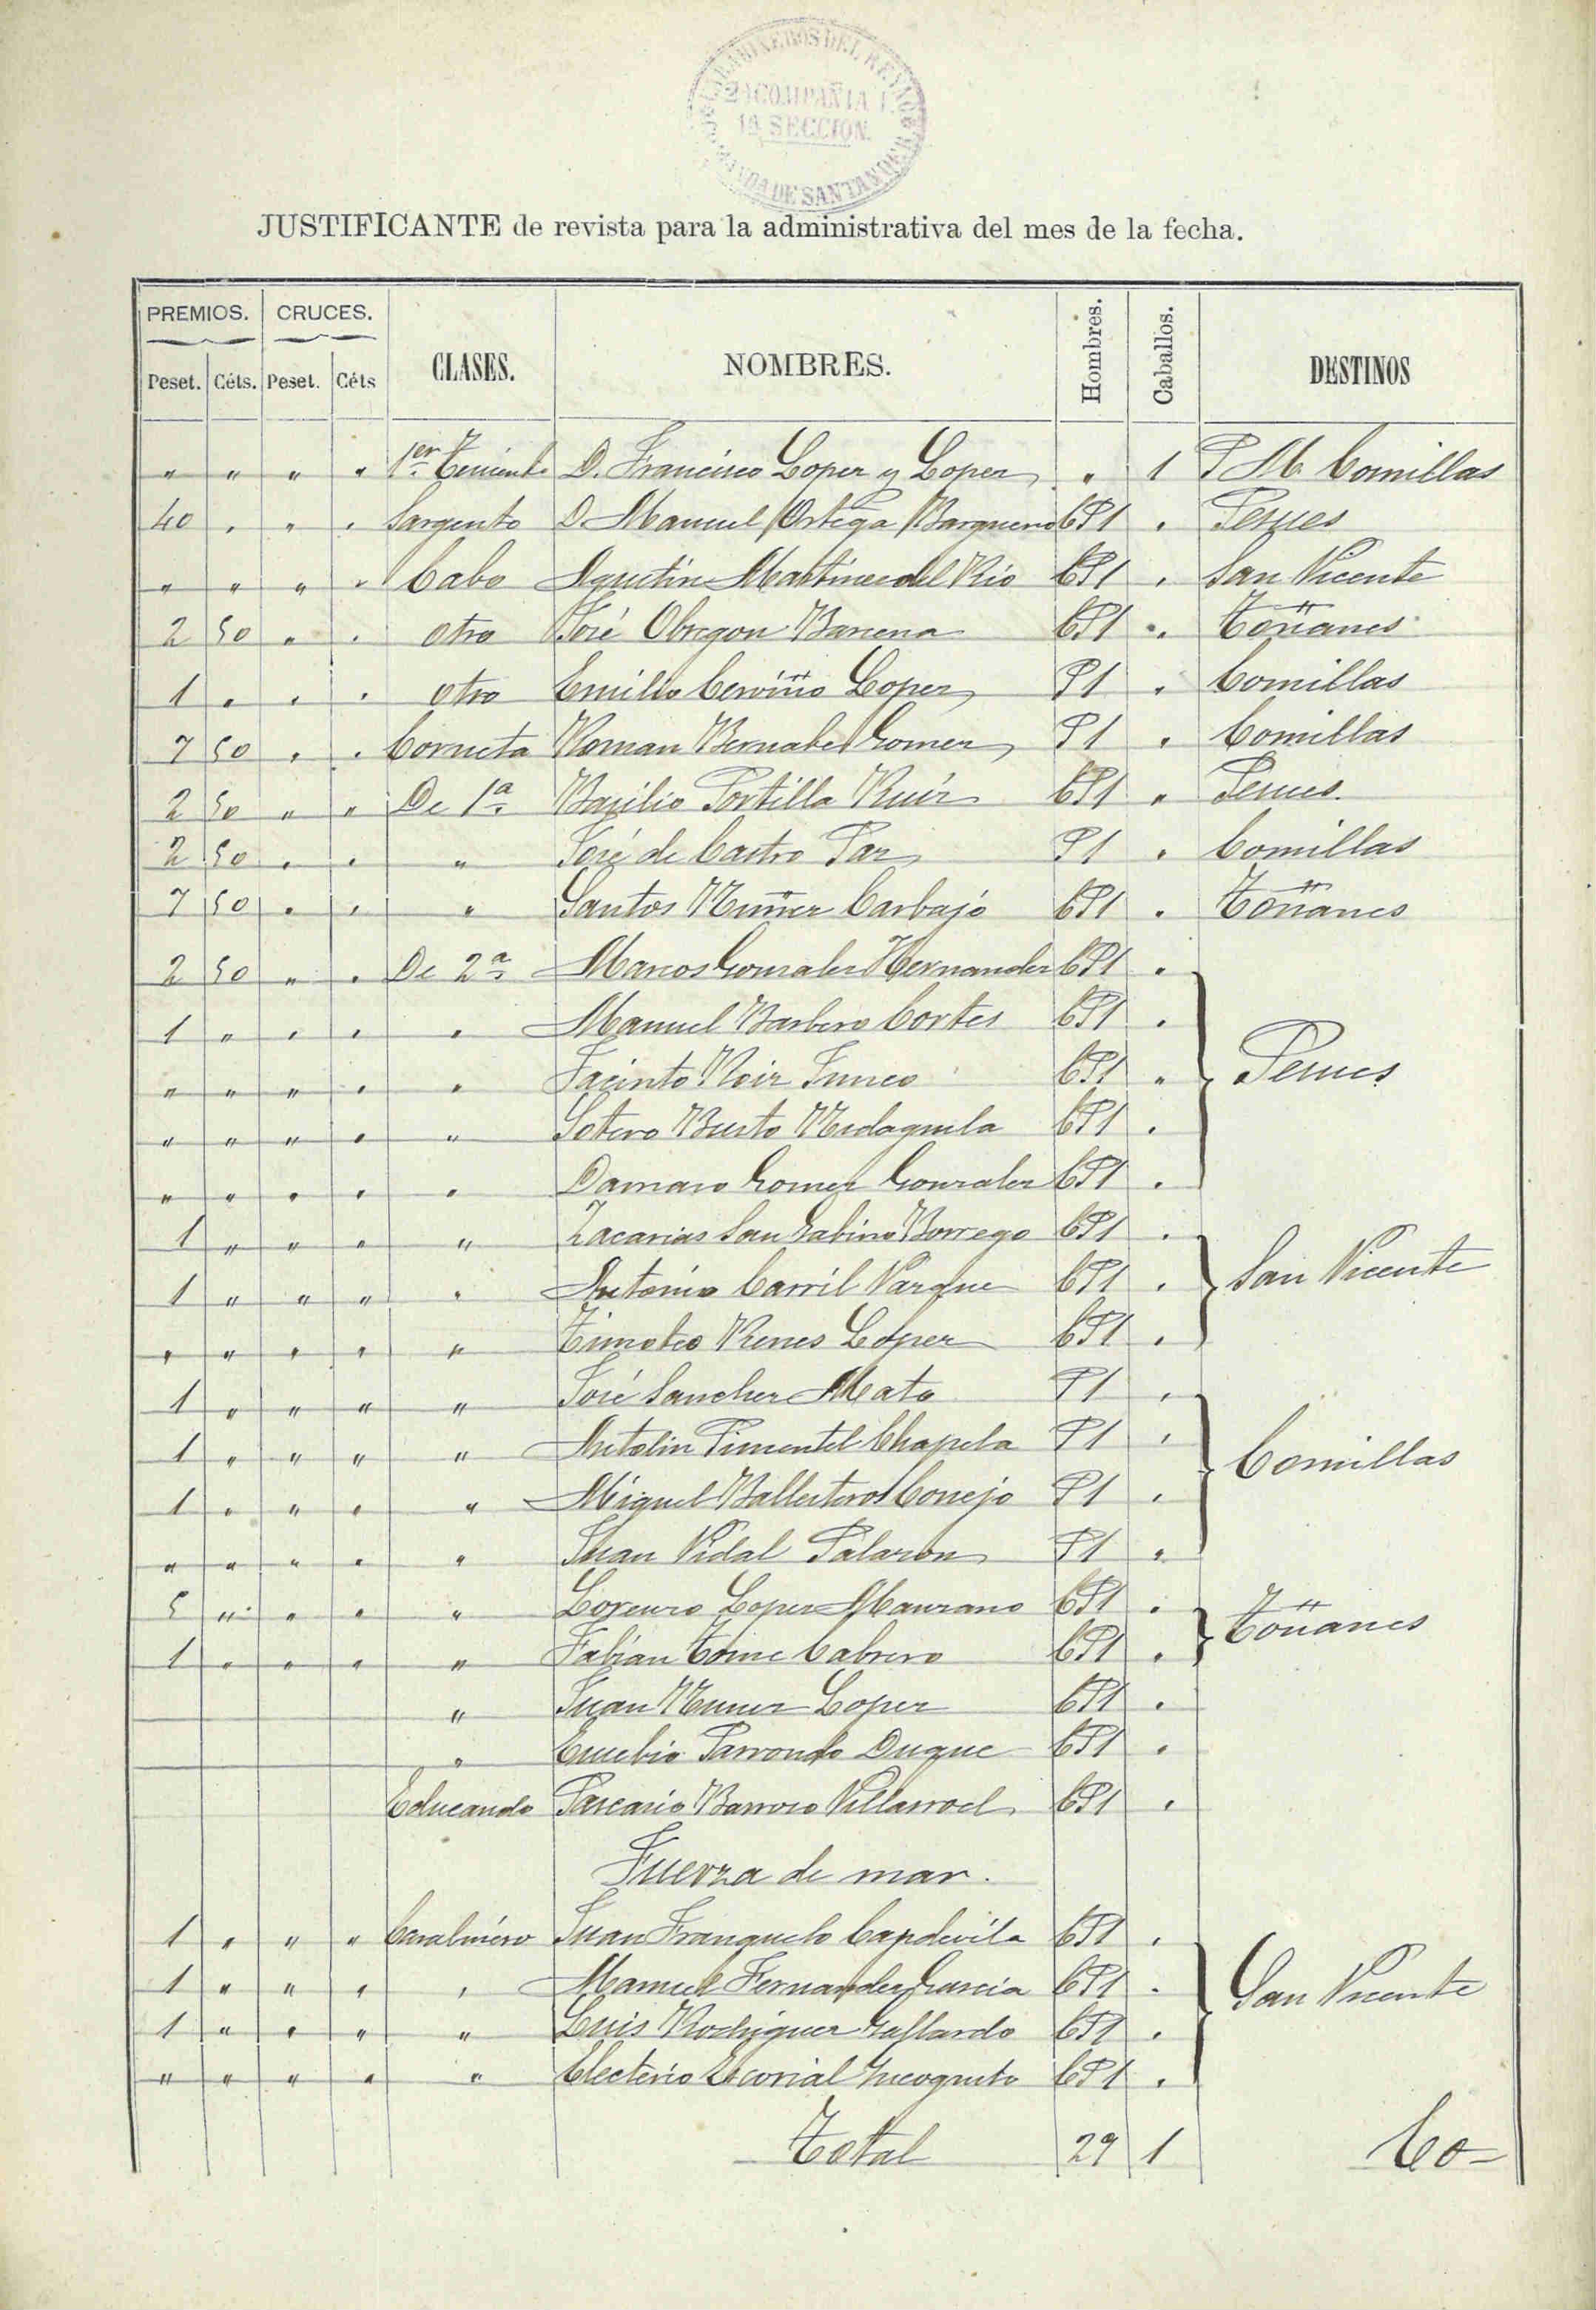 CARABINEROS DEL REYNO
2ª COMPAÑIA
1ª SECCION
COMANDA DE SANTANDER
JUSTIFICANTE de revista para la administrativa del mes de la fecha.
PREMIOS. CRUCES. CLASES. NOMBRES. Hombres. Caballos. DESTINOS
Peset. Céts. Peset. Céts
" " " " 1er Teniente D. Francisco Lopez y Lopez " 1 P M. Comillas
40 " " " Sargento D. Manuel Ortega Barquero CP1 " Pesues
" " " " Cabo Agustin Martinez del Rio CP1 " San Vicente
2 50 " " otro José Obregon Barcena CP1 " Toñanes
1 " " " otro Emilio Cerviño Lopez P1 " Comillas
7 50 " " Corneta Roman Bernabe Gomez P1 " Comillas
2 50 " " De 1ª Basilio Portilla Ruiz CP1 " Pesues.
2 50 " " " José de Castro Paz P1 " Comillas
7 50 " " " Santos Muñez Carbajo CP1 " Toñanes
2 50 " " De 2ª Marcos Gonzalez Hernandez CP1 "
1 " " " " Manuel Barbero Cortes CP1 "
" " " " " Jacinto Roiz Junco CP1 " Pesues
" " " " " Sotero Busto CP1 "
" " " " " Damaso Gomez Gonzalez CP1 "
1 " " " " Zacarias San Gabino Borrego CP1 "
1 " " " " Antonio Carril Vazque CP1 " San Vicente
" " " " " Timoteo Renes Lopez CP1 "
1 " " " " José Sanchez Mato P1 "
1 " " " " Antolin Pimentel Chapela P1 "
1 " " " " Miguel Ballesteros Conejo P1 " Comillas
" " " " " Juan Vidal Palazon P1 "
5 " " " " Lorenzo Lopez Manzano CP1 "
1 " " " " Fabian Tome Cabrero CP1 " Toñanes
" Juan Nuñez Lopez CP1 "
" Eusebio Parrondo Duque CP1 "
Educando Pascasio Barroso Villarroel CP1 "
Fuerza de mar.
1 " " " Carabinero Juan Franquelo Capdevila CP1 "
1 " " " " Manuel Fernandez Garcia CP1 " San Vicente
1 " " " " Luis Rodriguez Gallardo CP1 "
" " " " " Electerio Escorial Incognito CP1 "
Total 29 1 Co=